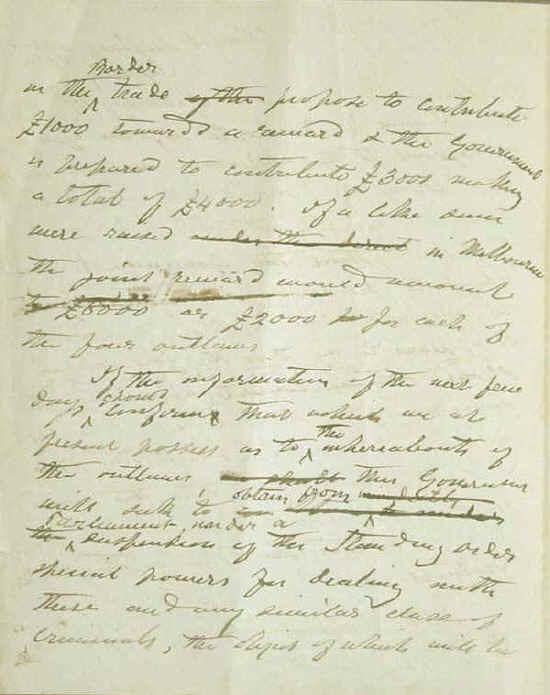 Border
in the ^ trade of the propose to contribute
£1000 towards a reward & the Government
is prepared to contribute £3000 making
a total of £4000. If a like sum
were raised in Melbourne
the joint reward would amount
to £8000 or £2000 for each of
the four outlaws
If the information of the next few
should
days ^ confirm that which we at
the
present possess as to ^ whereabouts of
the outlaws this Government
obtain from
will seek to
Parliament, under a
the ^ suspension of the Standing order
special powers for dealing with
these and any similar class of
criminals, the object of which will be